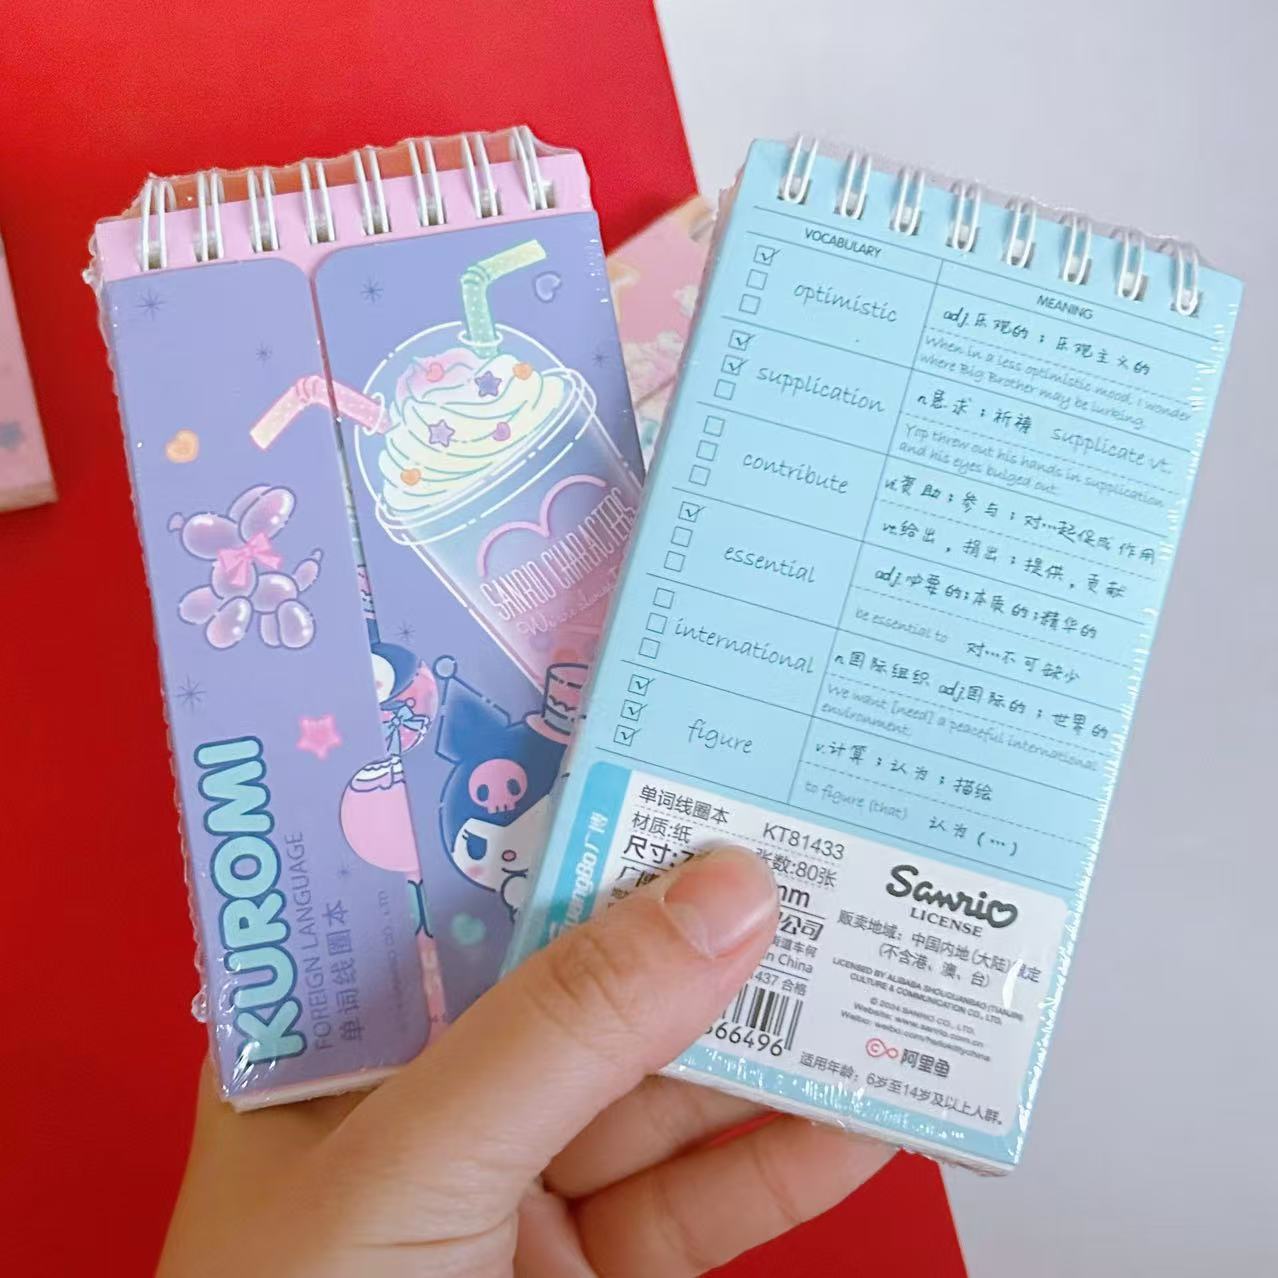 SANRIO CHARACTERS
KUROMI
FOREIGN LANGUAGE
单词线圈本
VOCABULARY
MEANING
optimistic
adj.乐观的；乐观主义的
When in a less optimistic mood. I wonder
where Big Brother may be lurking.
supplication
n恳求；祈祷 supplicate vt.
Yop throw out his hands in supplication
and his eyes bulged out.
contribute
vi.赞助；参与；对…起促成作用
vt.给出，捐出；提供，贡献
essential
adj.必要的；本质的；精华的
be essential to 对…不可缺少
international
n.国际组织 adj.国际的；世界的
We want [need] a peaceful international
environment.
figure
v.计算；认为；描绘
to figure (that) 认为(…)
GuangBo广博
单词线圈本 KT81433
材质:纸 张数:80张
尺寸:7 mm
公司
街道车何
in China
1437 合格
366496
Sanrio
LICENSE
贩卖地域：中国内地(大陆)限定
(不含港、澳、台)
LICENSED BY ALIBABA SHOUQUANBAO (TIANJIN)
CULTURE & COMMUNICATION CO., LTD.
© 2024 SANRIO CO., LTD.
Website: www.sanrio.com.cn
Weibo: weibo.com/hellokittychina
阿里鱼
适用年龄：6岁至14岁及以上人群。